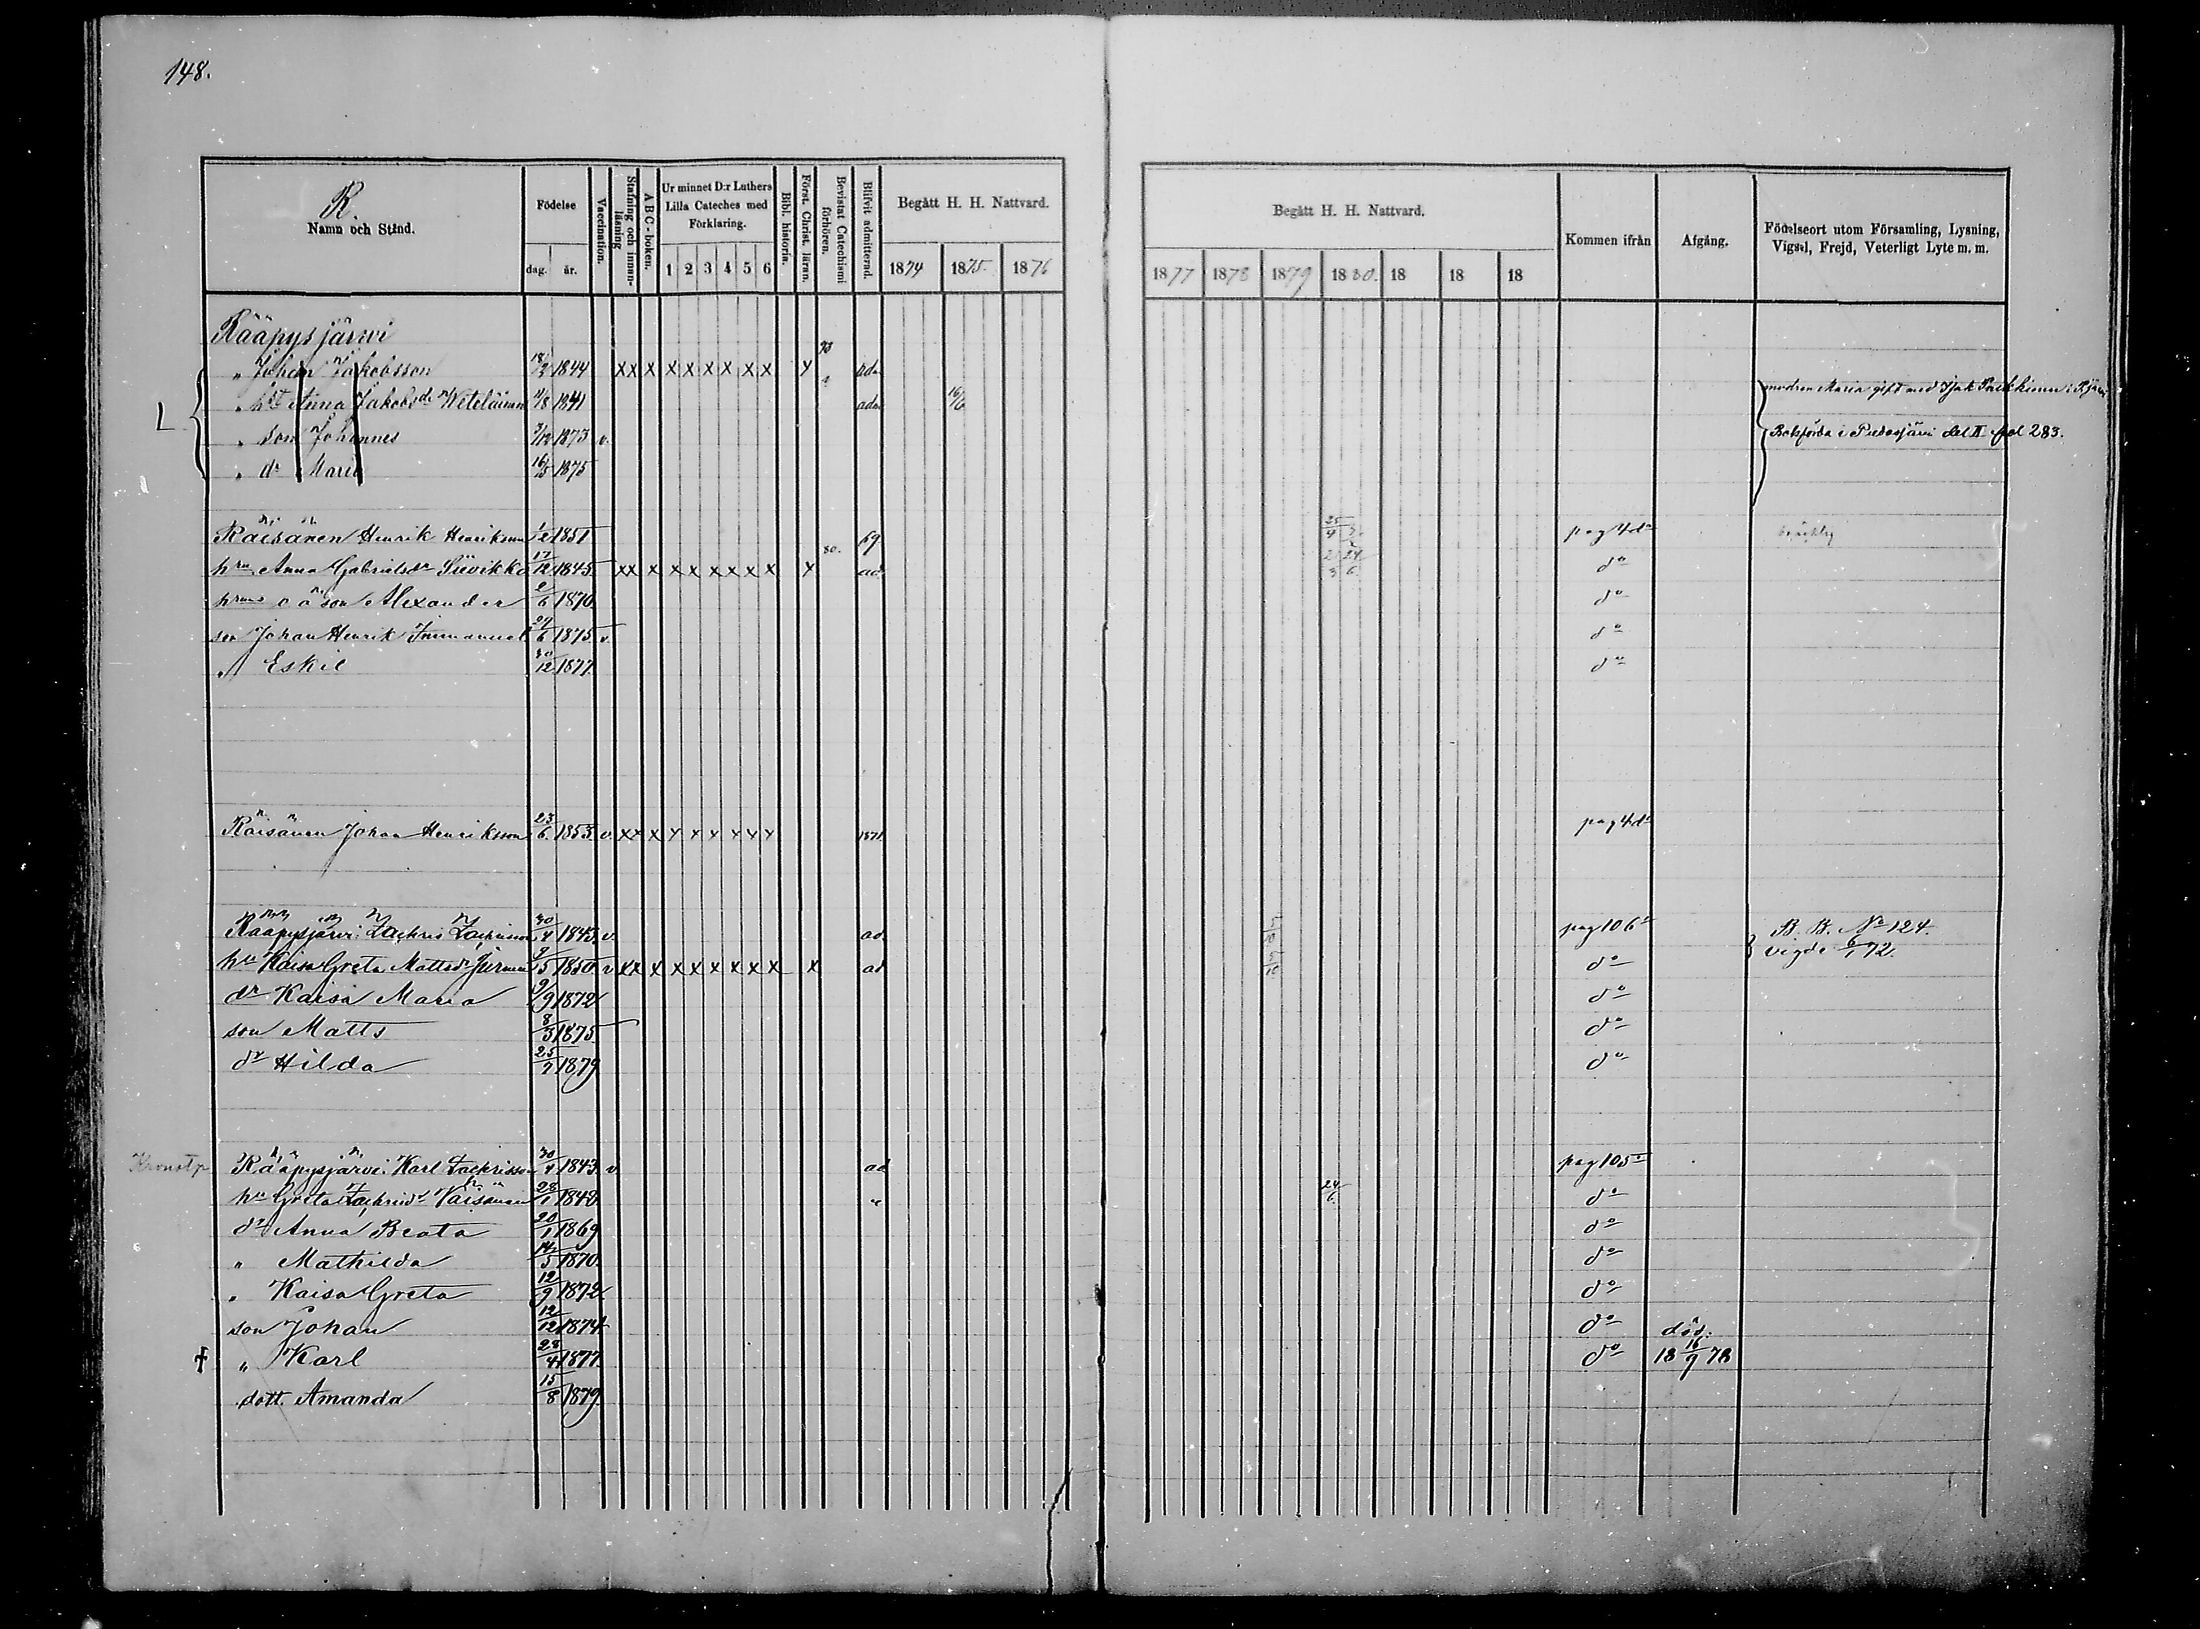 148.
R.
Namn och Stånd.
Födelse
dag. år.
Vaccination.
Stafning och innanläsning
A B C - boken.
Ur minnet D:r Luthers Lilla Cateches med Förklaring.
1 2 3 4 5 6
Bibl. historia.
Först. Christ. läran.
Bevistat Catechismi förhören.
Blifvit admitterad.
Begått H. H. Nattvard.
1874 1875. 1876
Begått H. H. Nattvard.
1877 1878 1879 1880. 18 18 18
Kommen ifrån
Afgång.
Födelseort utom Församling, Lysning, Vigsel, Frejd, Veterligt Lyte m. m.
Rääpysjärwi
" Johan Jakobsson 1844 x x x x x x x x x x
" Anna Jakobsdr 8 1841 adm 16/6 modren Maria gift med
" son Johannes 1873 v. Bokförda i Pudasjärvi del II fol 283.
" dr Maria 16/5 1875
Räisänen Henrik Henriksson 1/2 1851 69 25/4 pag 4 do
hru Anna Gabrielsdr Siivikko 17/12 1845 x x x x x x x x x x 80. ad. do
hrus o ä son Alexander 2/6 1870 do
son Johan Henrik Immanuel 24/6 1875 v. do
" Eskil 30/12 1877. do
Räisänen Johan Henriksson 23/6 1853. v. x x x x x x x x x 1871 pag 4 do
Rääpysjärvi Zachris Zachrisson 30/4 1843. v. ad. pag 106 B. B. No 124.
hu Kaisa Greta Mattsdr 9/5 1850 v x x x x x x x x x x ad do vigde 72.
dr Kaisa Maria 9/9 1872 do
son Matts 8/3 1875 do
dr Hilda 25/9 1879 do
Rääpysjärvi Karl Zachrisson 30/4 1843 v. ad pag 105
hu Greta Väisänen 28/1 1848 24/6 do
dr Anna Beata 20/1 1869 do
" Mathilda 14/5 1870. do
" Kaisa Greta 12/9 1872 do
son Johan 12/12 1874 do
† " Karl 28/4 1877 do död: 18 16/9 78
dott. Amanda 15/8 1879